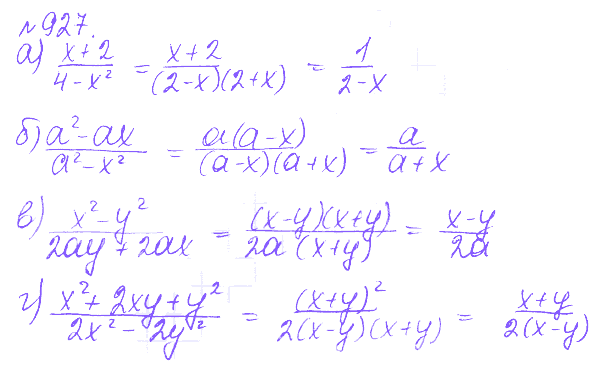 №927.
а) (x+2)/(4-x²) = (x+2)/((2-x)(2+x)) = 1/(2-x)
б) (a²-ax)/(a²-x²) = (a(a-x))/((a-x)(a+x)) = a/(a+x)
в) (x²-y²)/(2ay+2ax) = ((x-y)(x+y))/(2a(x+y)) = (x-y)/(2a)
г) (x²+2xy+y²)/(2x²-2y²) = (x+y)²/(2(x-y)(x+y)) = (x+y)/(2(x-y))